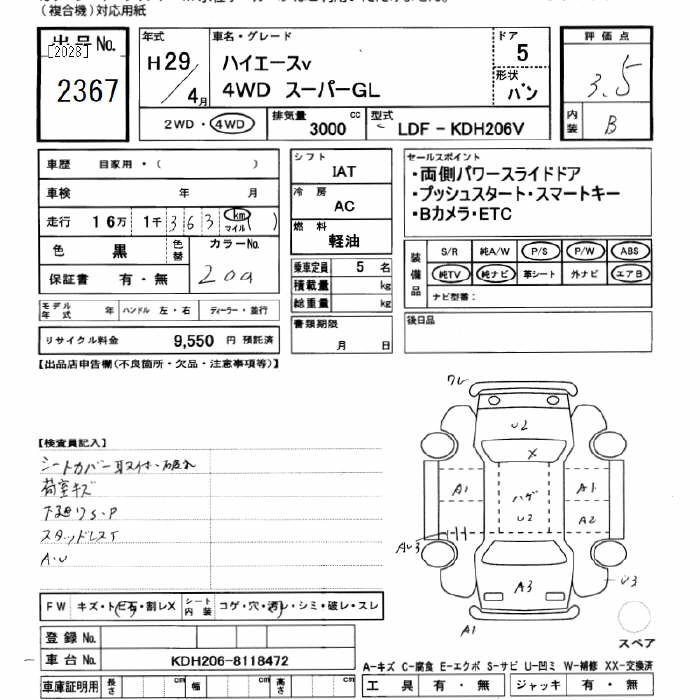 (複合機)対応用紙
出品No. [2028] 2367
年式 H29/4月
車名・グレード ハイエースv 4WD スーパーGL
ドア 5
形状 バン
評価点 3.5
内装 B
2WD・4WD
排気量 3000 cc
型式 LDF-KDH206V
車歴 自家用・( )
車検 年 月
走行 16万 1千 3 6 3 km マイル ( )
色 黒 色替 カラーNo. 209
保証書 有・無
シフト IAT
冷房 AC
燃料 軽油
乗車定員 5 名
積載量 kg
総重量 kg
書類期限 月 日
セールスポイント
・両側パワースライドドア
・プッシュスタート・スマートキー
・Bカメラ・ETC
装備品 S/R 純A/W P/S P/W ABS
純TV 純ナビ 革シート 外ナビ エアB
ナビ型番:
後日品
モデル年式 年 ハンドル 左・右 ディーラー・並行
リサイクル料金 9,550 円 預託済
【出品店申告欄(不良箇所・欠品・注意事項等)】
【検査員記入】
シートカバー取付・破れ
荷室キズ
下廻りS・P
スタッドレス
A・U
ワレ
U2
X
A1 ハゲ A1
U2 A2
AU3
A3
U3
A1
スペア
FW キズ・トビ石・割レX シート内装 コゲ・穴・汚レ・シミ・破レ・スレ
登録No.
車台No. KDH206-8118472
車庫証明用 長さ cm 幅 cm 高さ cm
A-キズ C-腐食 E-エクボ S-サビ U-凹ミ W-補修 XX-交換済
工具 有・無 ジャッキ 有・無